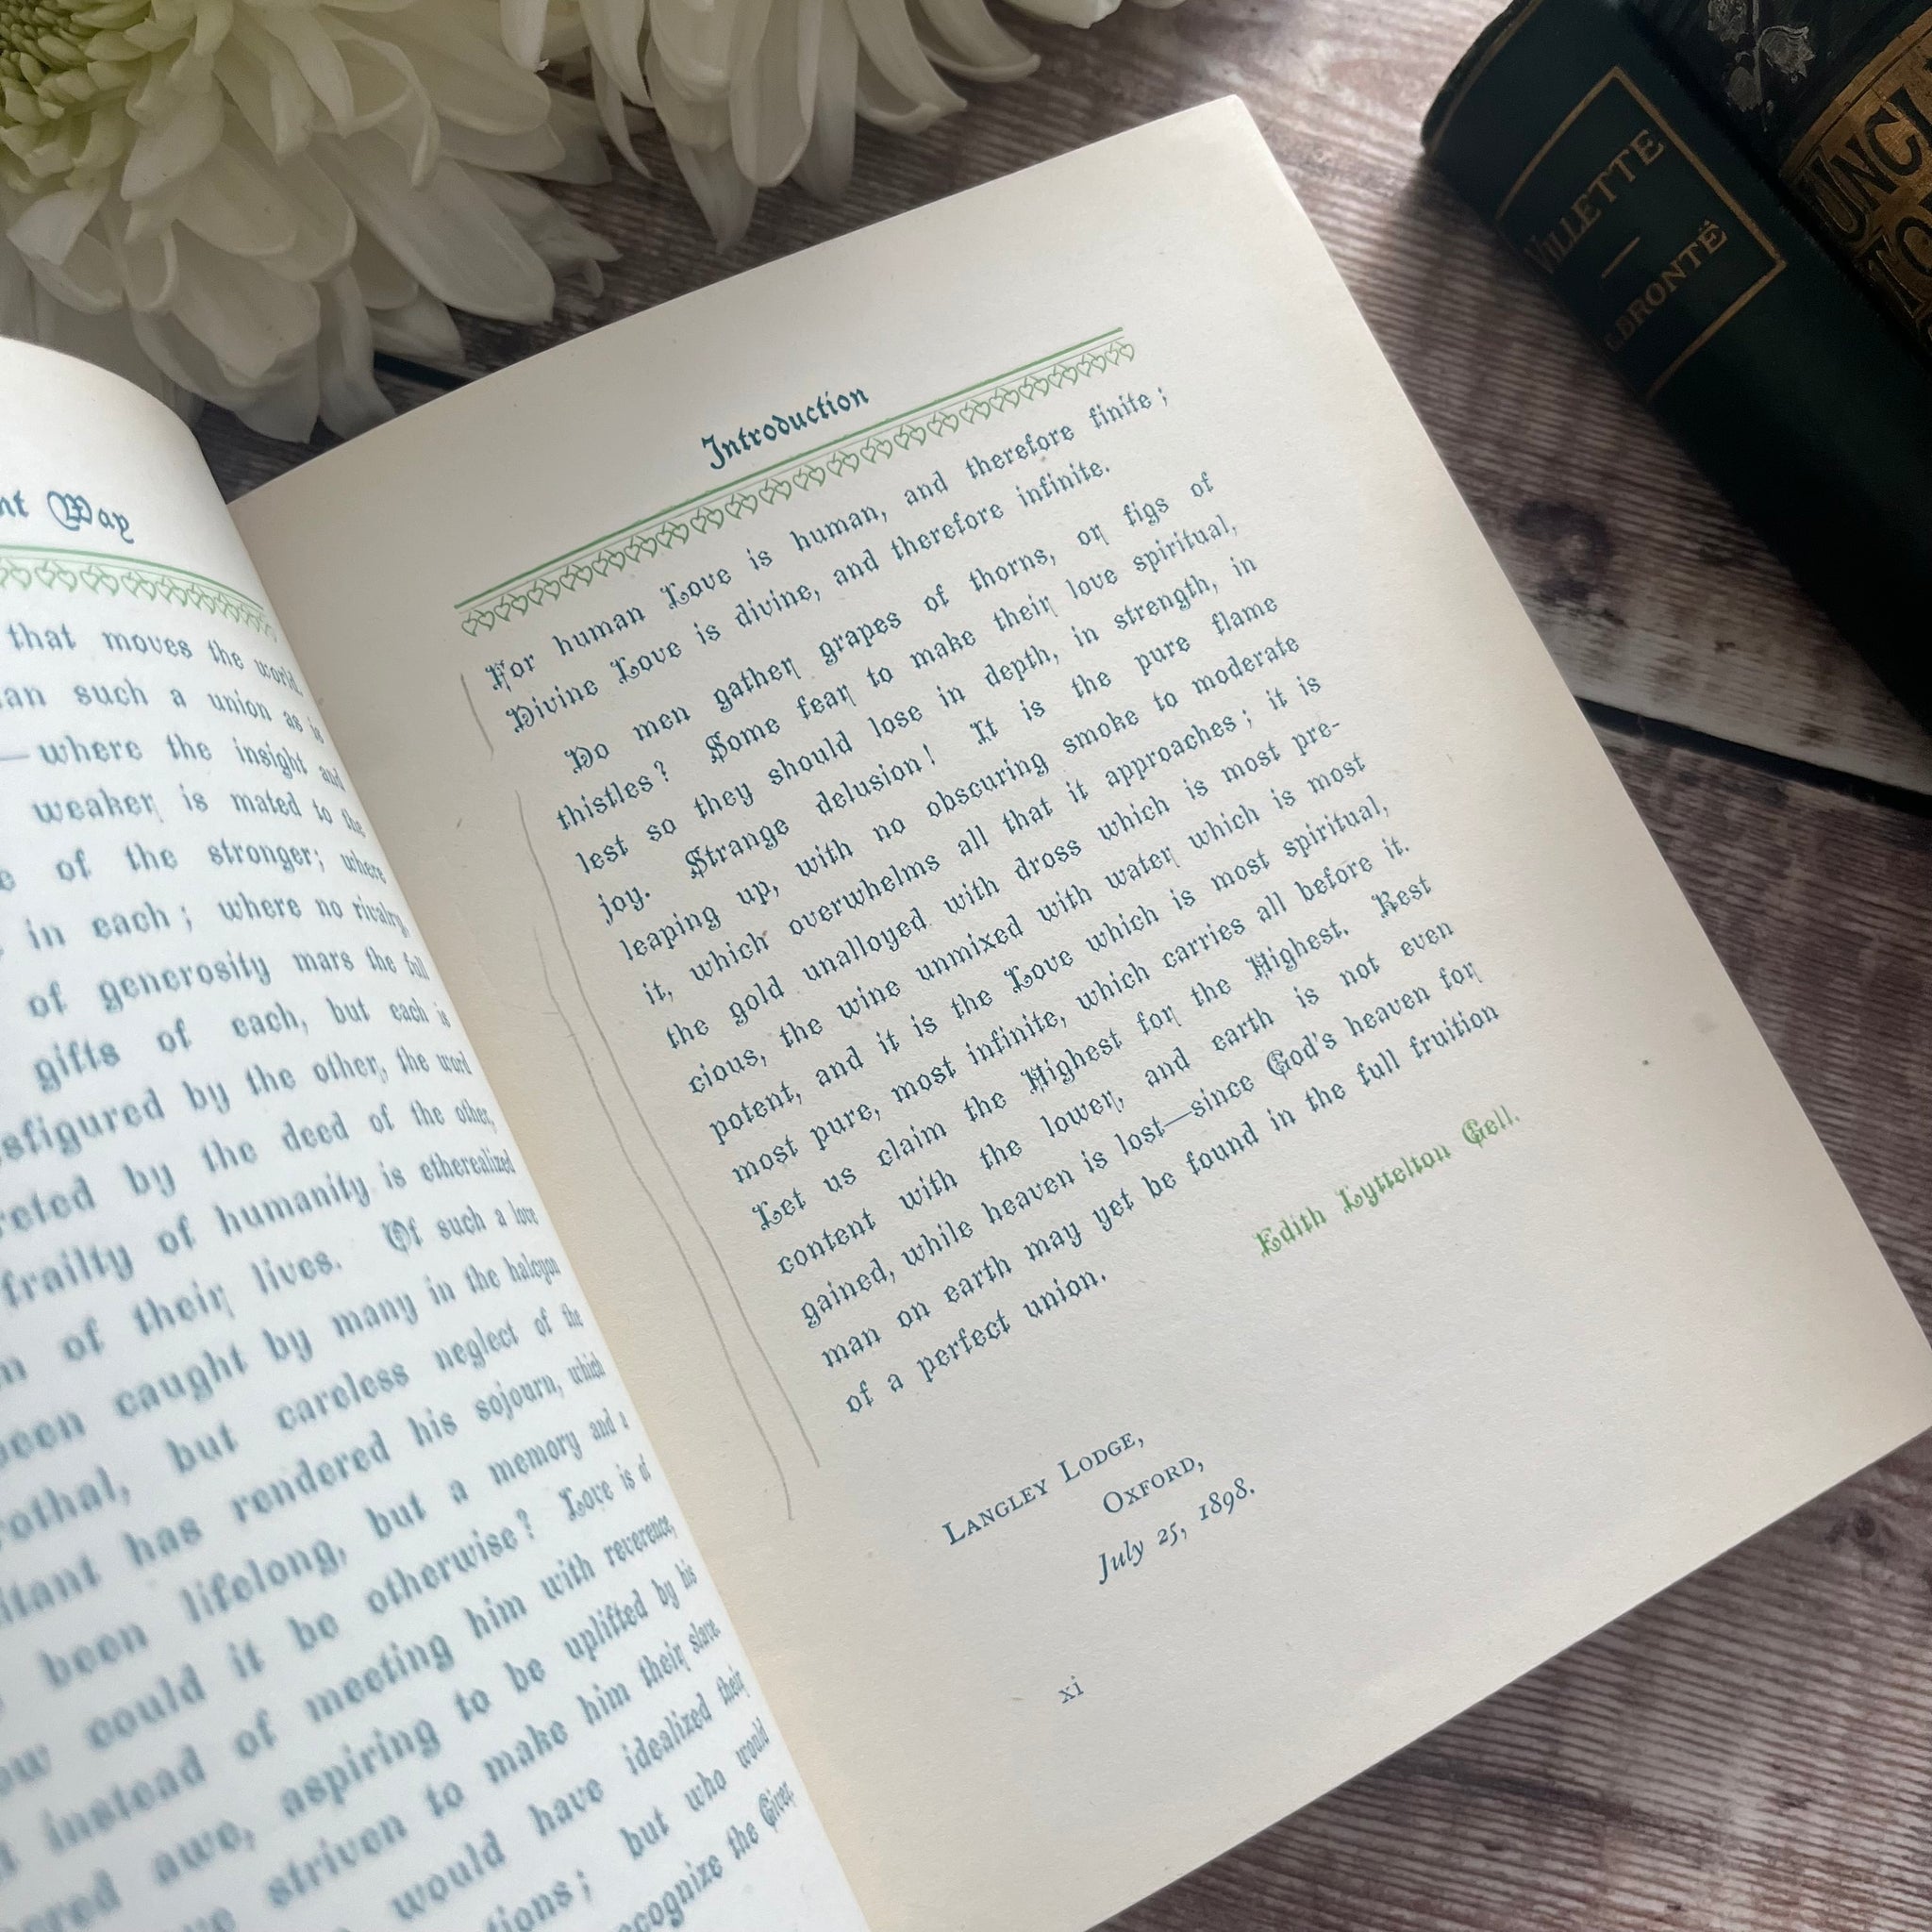 nt Way
that moves the world.
an such a union as is
—where the insight and
weaker is mated to the
of the stronger; where
in each; where no rivalry,
of generosity mars the full
gifts of each, but each is
sfigured by the other, the word
reted by the deed of the other,
frailty of humanity is etherealized
of their lives. Of such a love
been caught by many in the halcyon
rothal, but careless neglect of the
itant has rendered his sojourn, which
been lifelong, but a memory and a
ow could it be otherwise? Love is of
instead of meeting him with reverence,
ered awe, aspiring to be uplifted by his
striven to make him their slave.
would have idealized their
tions; but who would
ecognize the Giver.
Introduction
For human Love is human, and therefore finite;
Divine Love is divine, and therefore infinite.
Do men gather grapes of thorns, or figs of
thistles? Some fear to make their love spiritual,
lest so they should lose in depth, in strength, in
joy. Strange delusion! It is the pure flame
leaping up, with no obscuring smoke to moderate
it, which overwhelms all that it approaches; it is
the gold unalloyed with dross which is most pre-
cious, the wine unmixed with water which is most
potent, and it is the Love which is most spiritual,
most pure, most infinite, which carries all before it.
Let us claim the Highest for the Highest. Rest
content with the lower, and earth is not even
gained, while heaven is lost—since God's heaven for
man on earth may yet be found in the full fruition
of a perfect union.
Edith Lyttelton Gell.
LANGLEY LODGE,
OXFORD,
July 25, 1898.
xi
VILLETTE
C. BRONTË
UNC
TO